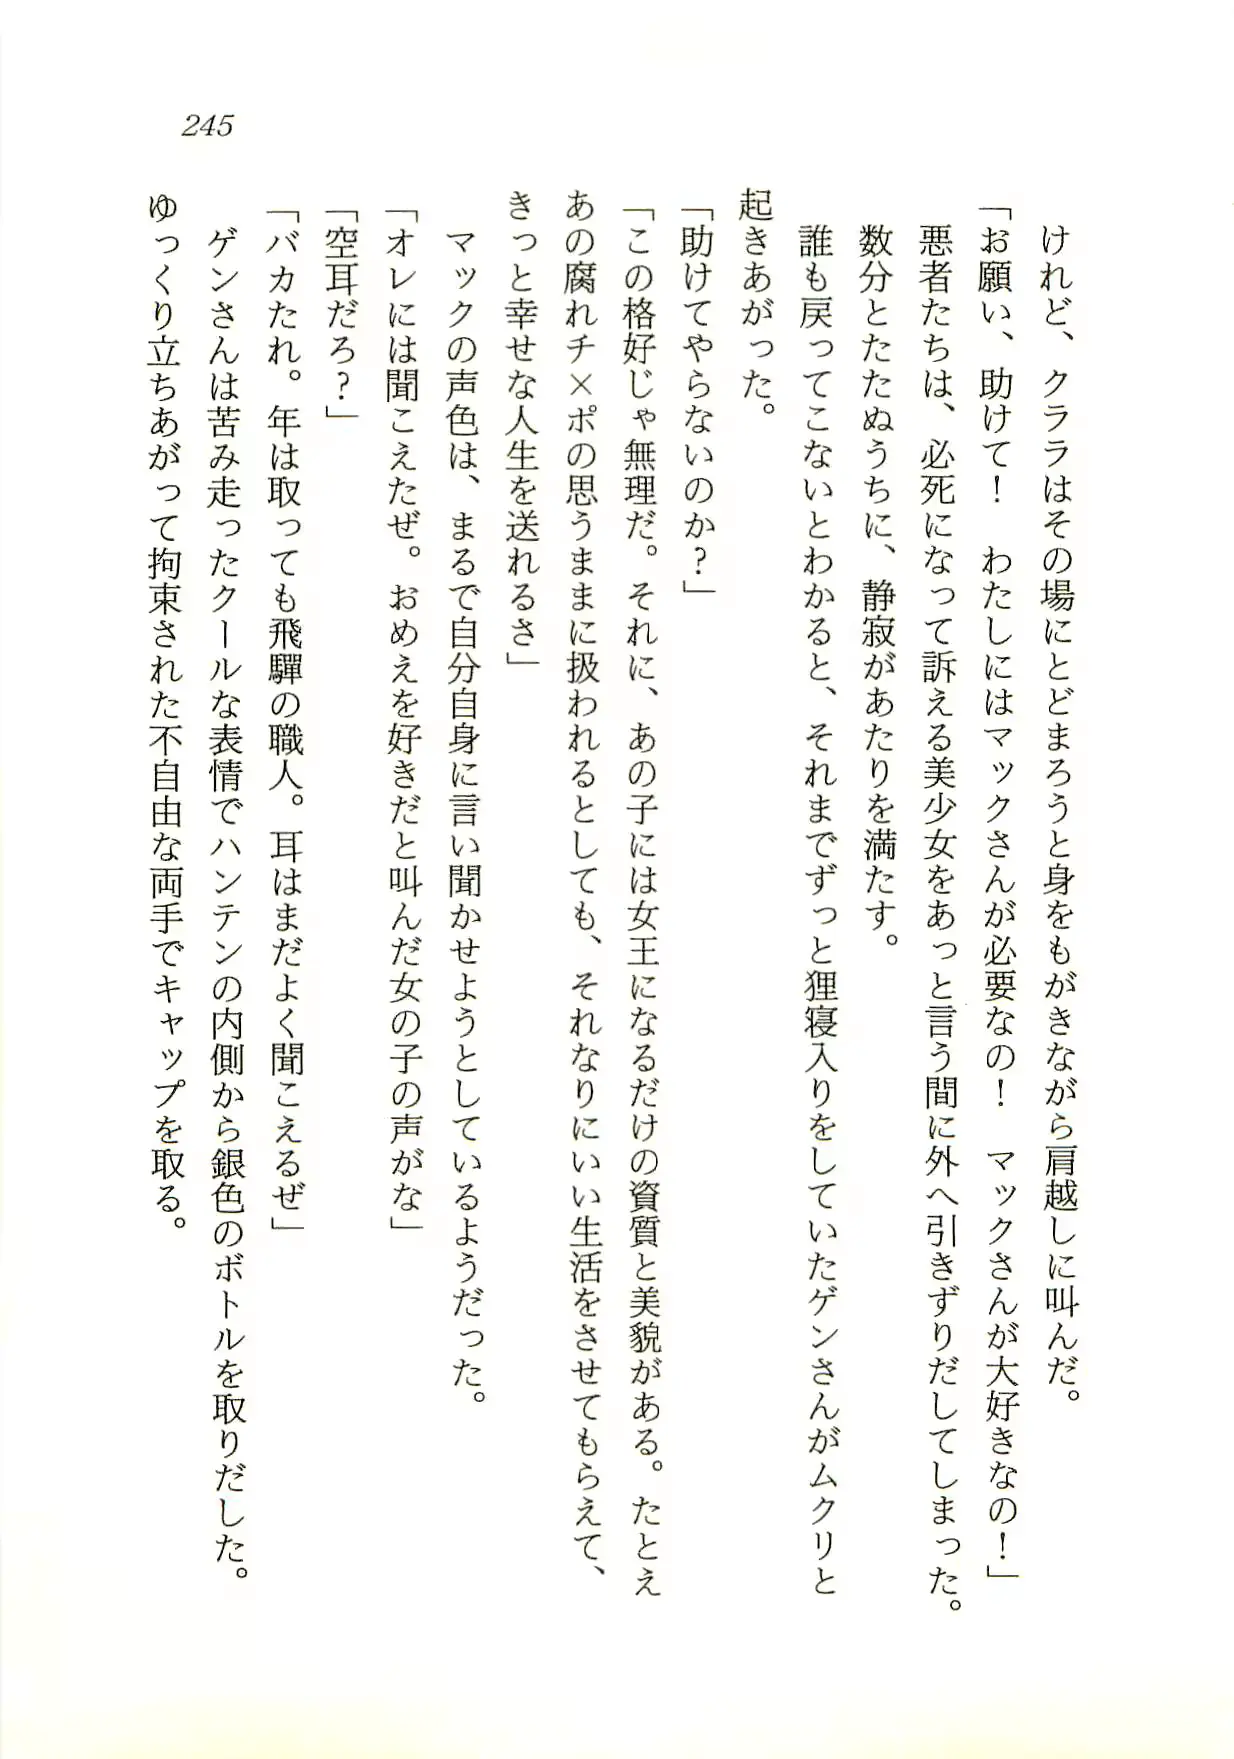 245
けれど、クララはその場にとどまろうと身をもがきながら肩越しに叫んだ。
「お願い、助けて！　わたしにはマックさんが必要なの！　マックさんが大好きなの！」
悪者たちは、必死になって訴える美少女をあっと言う間に外へ引きずりだしてしまった。
数分とたたぬうちに、静寂があたりを満たす。
誰も戻ってこないとわかると、それまでずっと狸寝入りをしていたゲンさんがムクリと
起きあがった。
「助けてやらないのか？」
「この格好じゃ無理だ。それに、あの子には女王になるだけの資質と美貌がある。たとえ
あの腐れチ×ポの思うままに扱われるとしても、それなりにいい生活をさせてもらえて、
きっと幸せな人生を送れるさ」
マックの声色は、まるで自分自身に言い聞かせようとしているようだった。
「オレには聞こえたぜ。おめえを好きだと叫んだ女の子の声がな」
「空耳だろ？」
「バカたれ。年は取っても飛驒の職人。耳はまだよく聞こえるぜ」
ゲンさんは苦み走ったクールな表情でハンテンの内側から銀色のボトルを取りだした。
ゆっくり立ちあがって拘束された不自由な両手でキャップを取る。